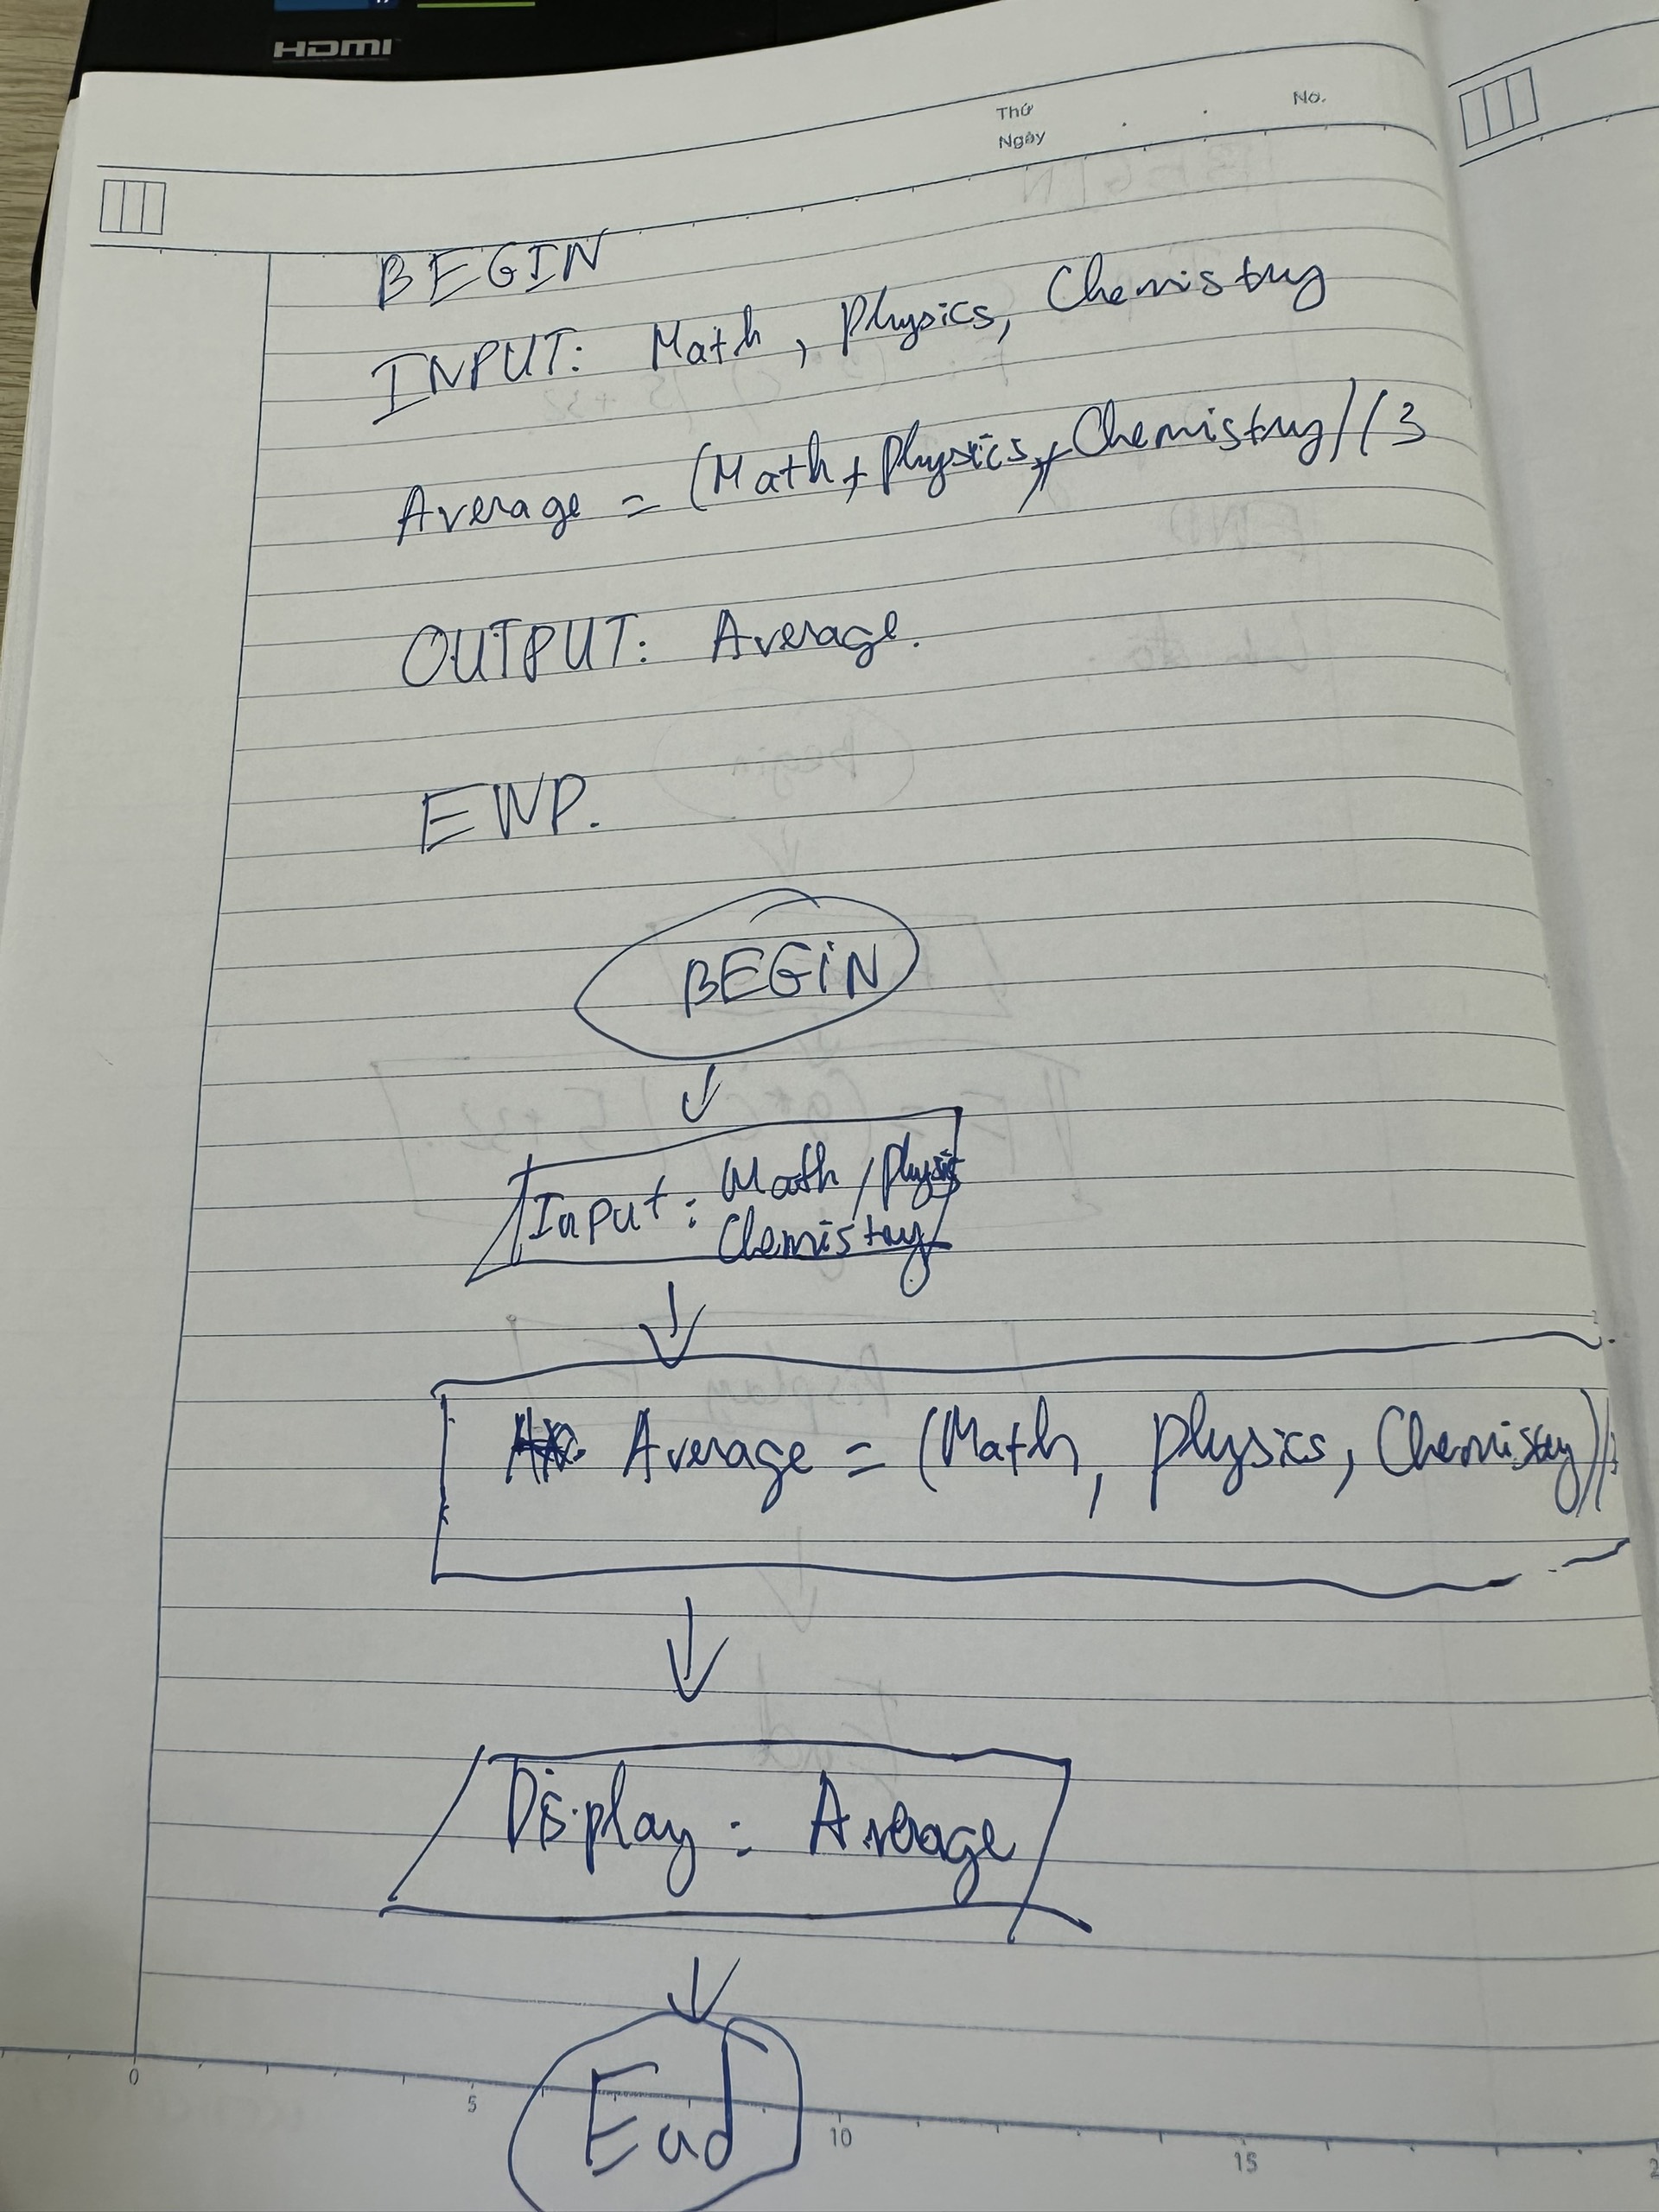 HDMI
Thứ
Ngày
No.
BEGIN
INPUT: Math, Physics, Chemistry
Average = (Math + Physics + Chemistry)/(3
OUTPUT: Average.
END.
BEGiN
Input: Math, Physic
Chemistry
Average = (Math, Physics, Chemistry)/
Display: Average
End
0
5
10
15
2